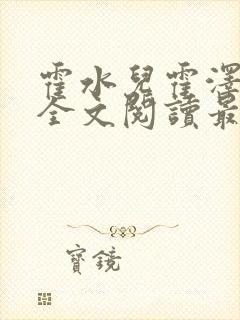 霍水兒霍澤
全文閱讀最
寶鏡